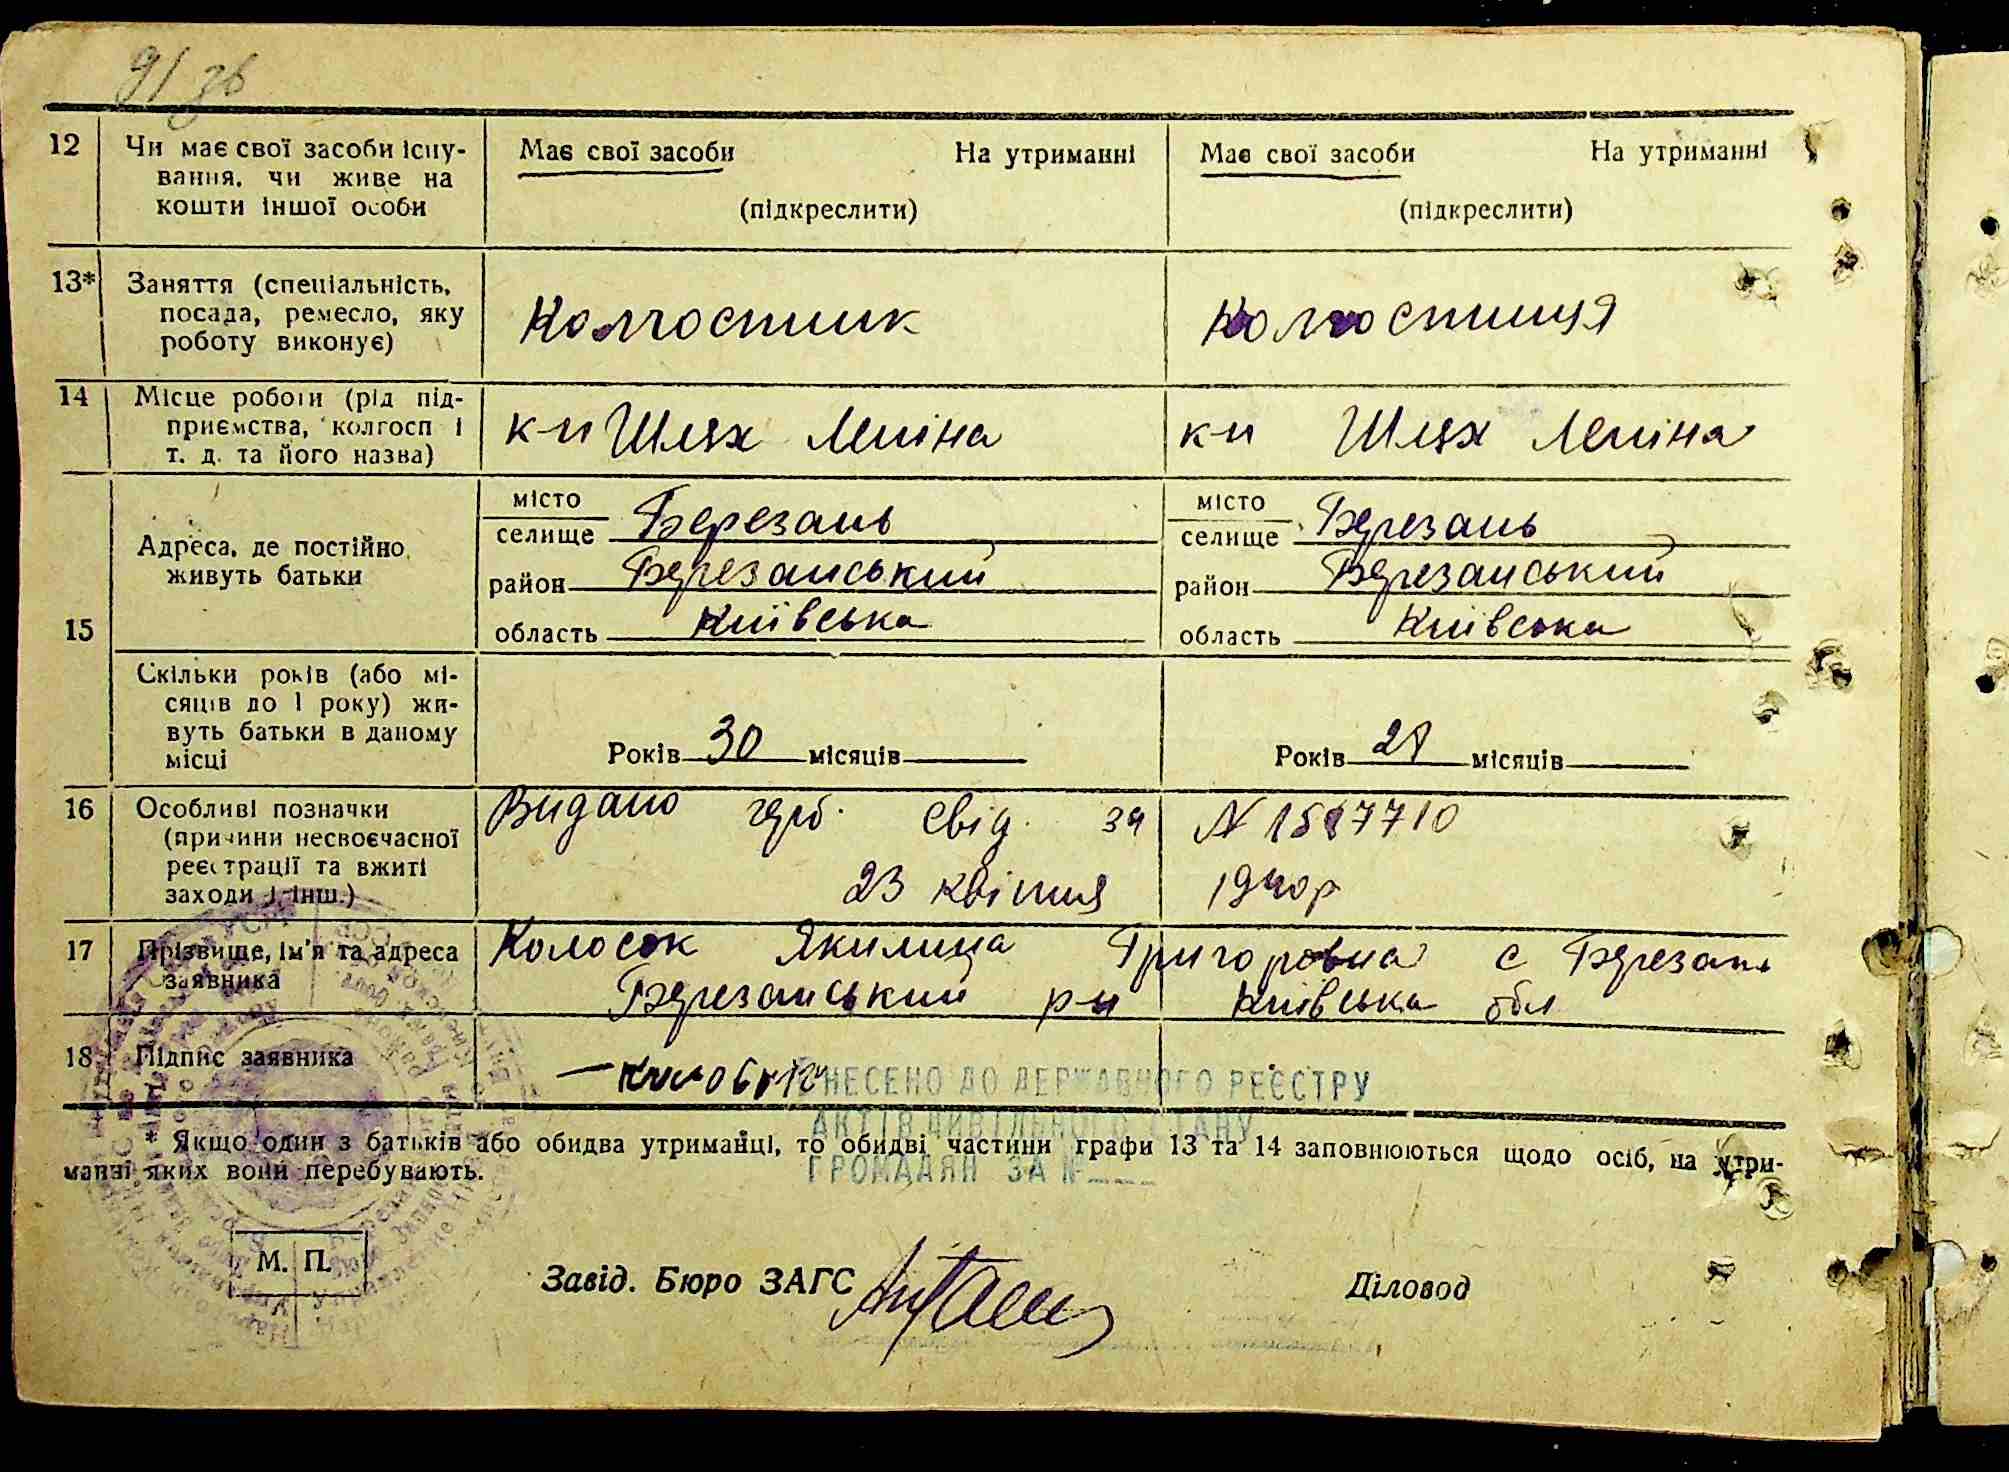 91 зв
12 Чи має свої засоби існу- Має свої засоби На утриманні Має свої засоби На утриманні
вання, чи живе на
кошти іншої особи (підкреслити) (підкреслити)
13* Заняття (спеціальність,
посада, ремесло, яку Колгоспник Колгоспниця
роботу виконує)
14 Місце роботи (рід під-
приємства, колгосп і к-п Шлях Леніна к-п Шлях Леніна
т. д. та його назва)
15 Адреса, де постійно живуть батьки
місто
селище Березань
район Березанський
область Київська
місто
селище Березань
район Березанський
область Київська
Скільки років (або мі-
сяців до 1 року) жи-
вуть батьки в даному
місці
Років 30 місяців Років місяців
16 Особливі позначки Видано герб. свід. за N
(причини несвоєчасної
реєстрації та вжиті
заходи і інш.) 23 квітня 1940р
17 Прізвище, ім'я та адреса Колосок Якилина Григоровна с Березань
заявника Березанський р-н Київська обл
18 Підпис заявника
ВНЕСЕНО ДО ДЕРЖАВНОГО РЕЄСТРУ
АКТІВ ЦИВІЛЬНОГО СТАНУ
ГРОМАДЯН ЗА №
* Якщо один з батьків або обидва утриманці, то обидві частини графи 13 та 14 заповнюються щодо осіб, на утри-
манні яких вони перебувають.
М. П.
Завід. Бюро ЗАГС Діловод